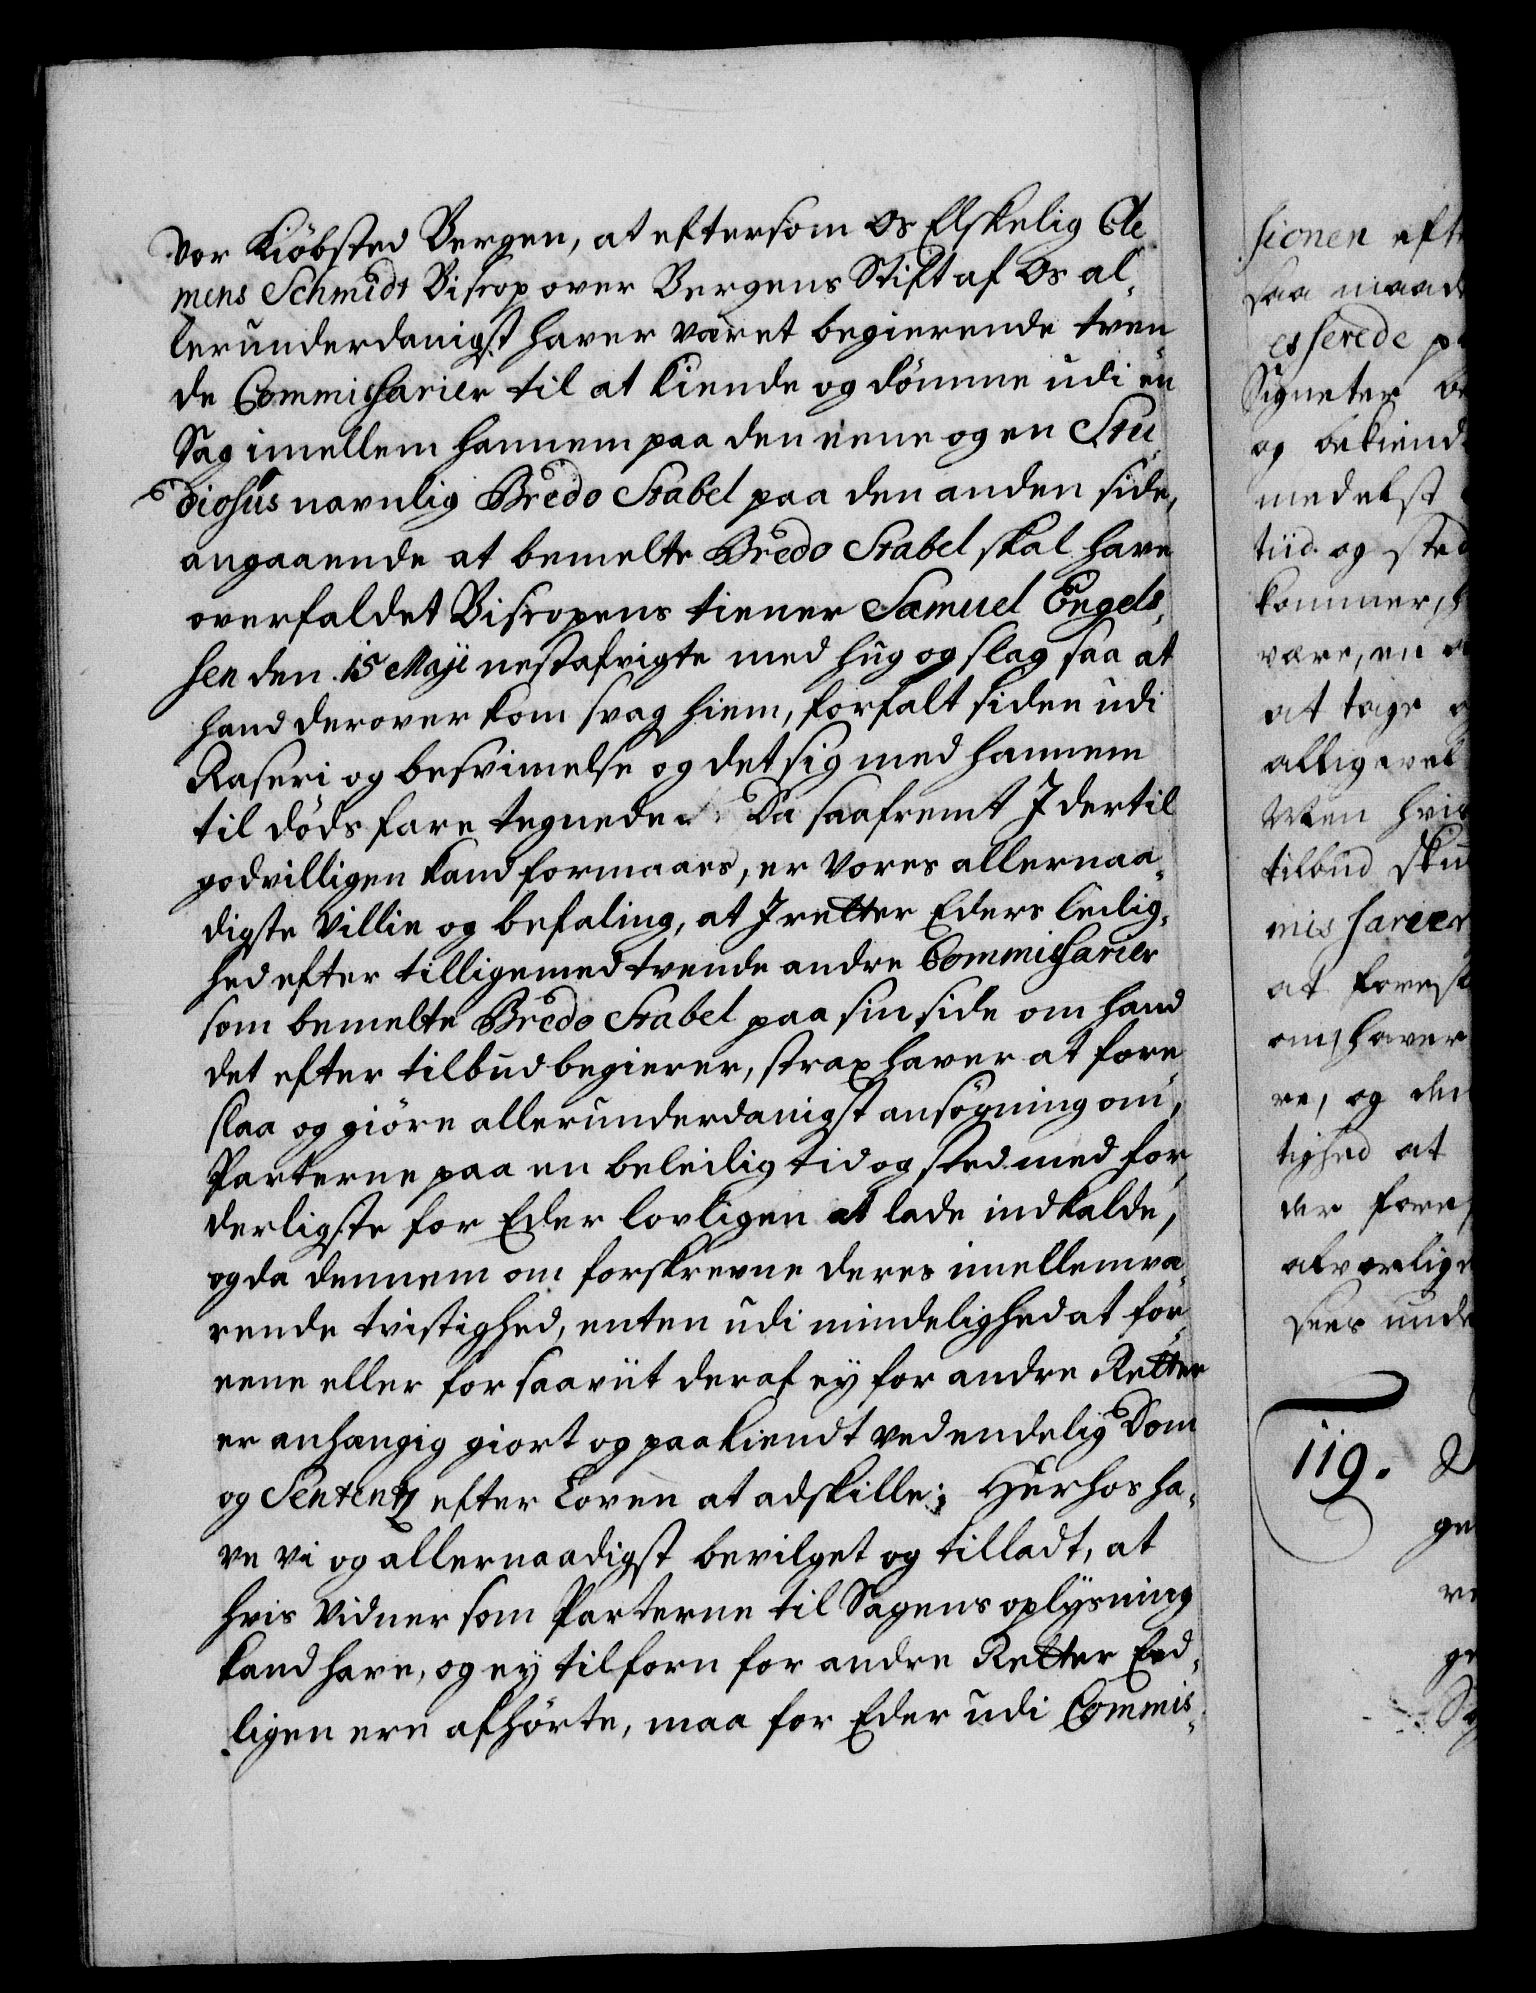 vor Kiöbsted Bergen, at eftersom Os Elskelig Cle
mens Schmidt Biscop over Bergens Stift af Os al-
lerunderdanigst haver været begierende tven
de Commissarier til at kiende og dömme udi en
Sag imellem hannem paa den eene og en Stu
diosus navnlig Bredo Stabel paa den anden side,
angaaende at bemelte Bredo Stabel skal have
overfaldet Biscopens tiener Samuel Engels-
sen den 15 Maji nestafvigte med hug og slag saa at
hand derover kom svag hiem, forfalt siden udi
Raseri og besvimelse og det sig med hannem
til döds fare tegnede. Da saafremt I dertil
godvilligen kand formaaes, er Vores allernaa-
digste Villie og befaling, at I retter Eders leilig-
hed efter tilligemed tvende andre Commissarier
som bemelte Bredo Stabel paa sin side om hand
det efter tilbud begierer, strax haver at fore
slaa og giöre allerunderdanigst ansögning om,
Parterne paa en beleilig tid og sted med for-
derligste for Eder lovligen at lade indkalde,
og da dennem om forskrevne deres imellemvæ-
rende tvistighed, enten udi mindelighed at for-
eene eller for saaviit deraf ey for andre Retter
er anhængig giort og paakiendt ved endelig Dom
og Sententz efter Loven at adskille; Herhos ha-
ve vi og allernaadigst bevilget og tilladt, at
hvis Vidner som Parterne til Sagens oplysning
kand have, og ey tilforn for andre Retter Eed-
ligen ere afhörte, maa for Eder udi Commis-
sionen eft
saa maad
esserede p
Signeter
og bekiend
medelst
tiid og sted
kommer, h
være, en
at tage
alligevel
Men hvis
tilbud sku
missarier
at forest
om haver
re, og den
tighed at
der fore
alvorlig
sees unde
119.
ge
re
ge